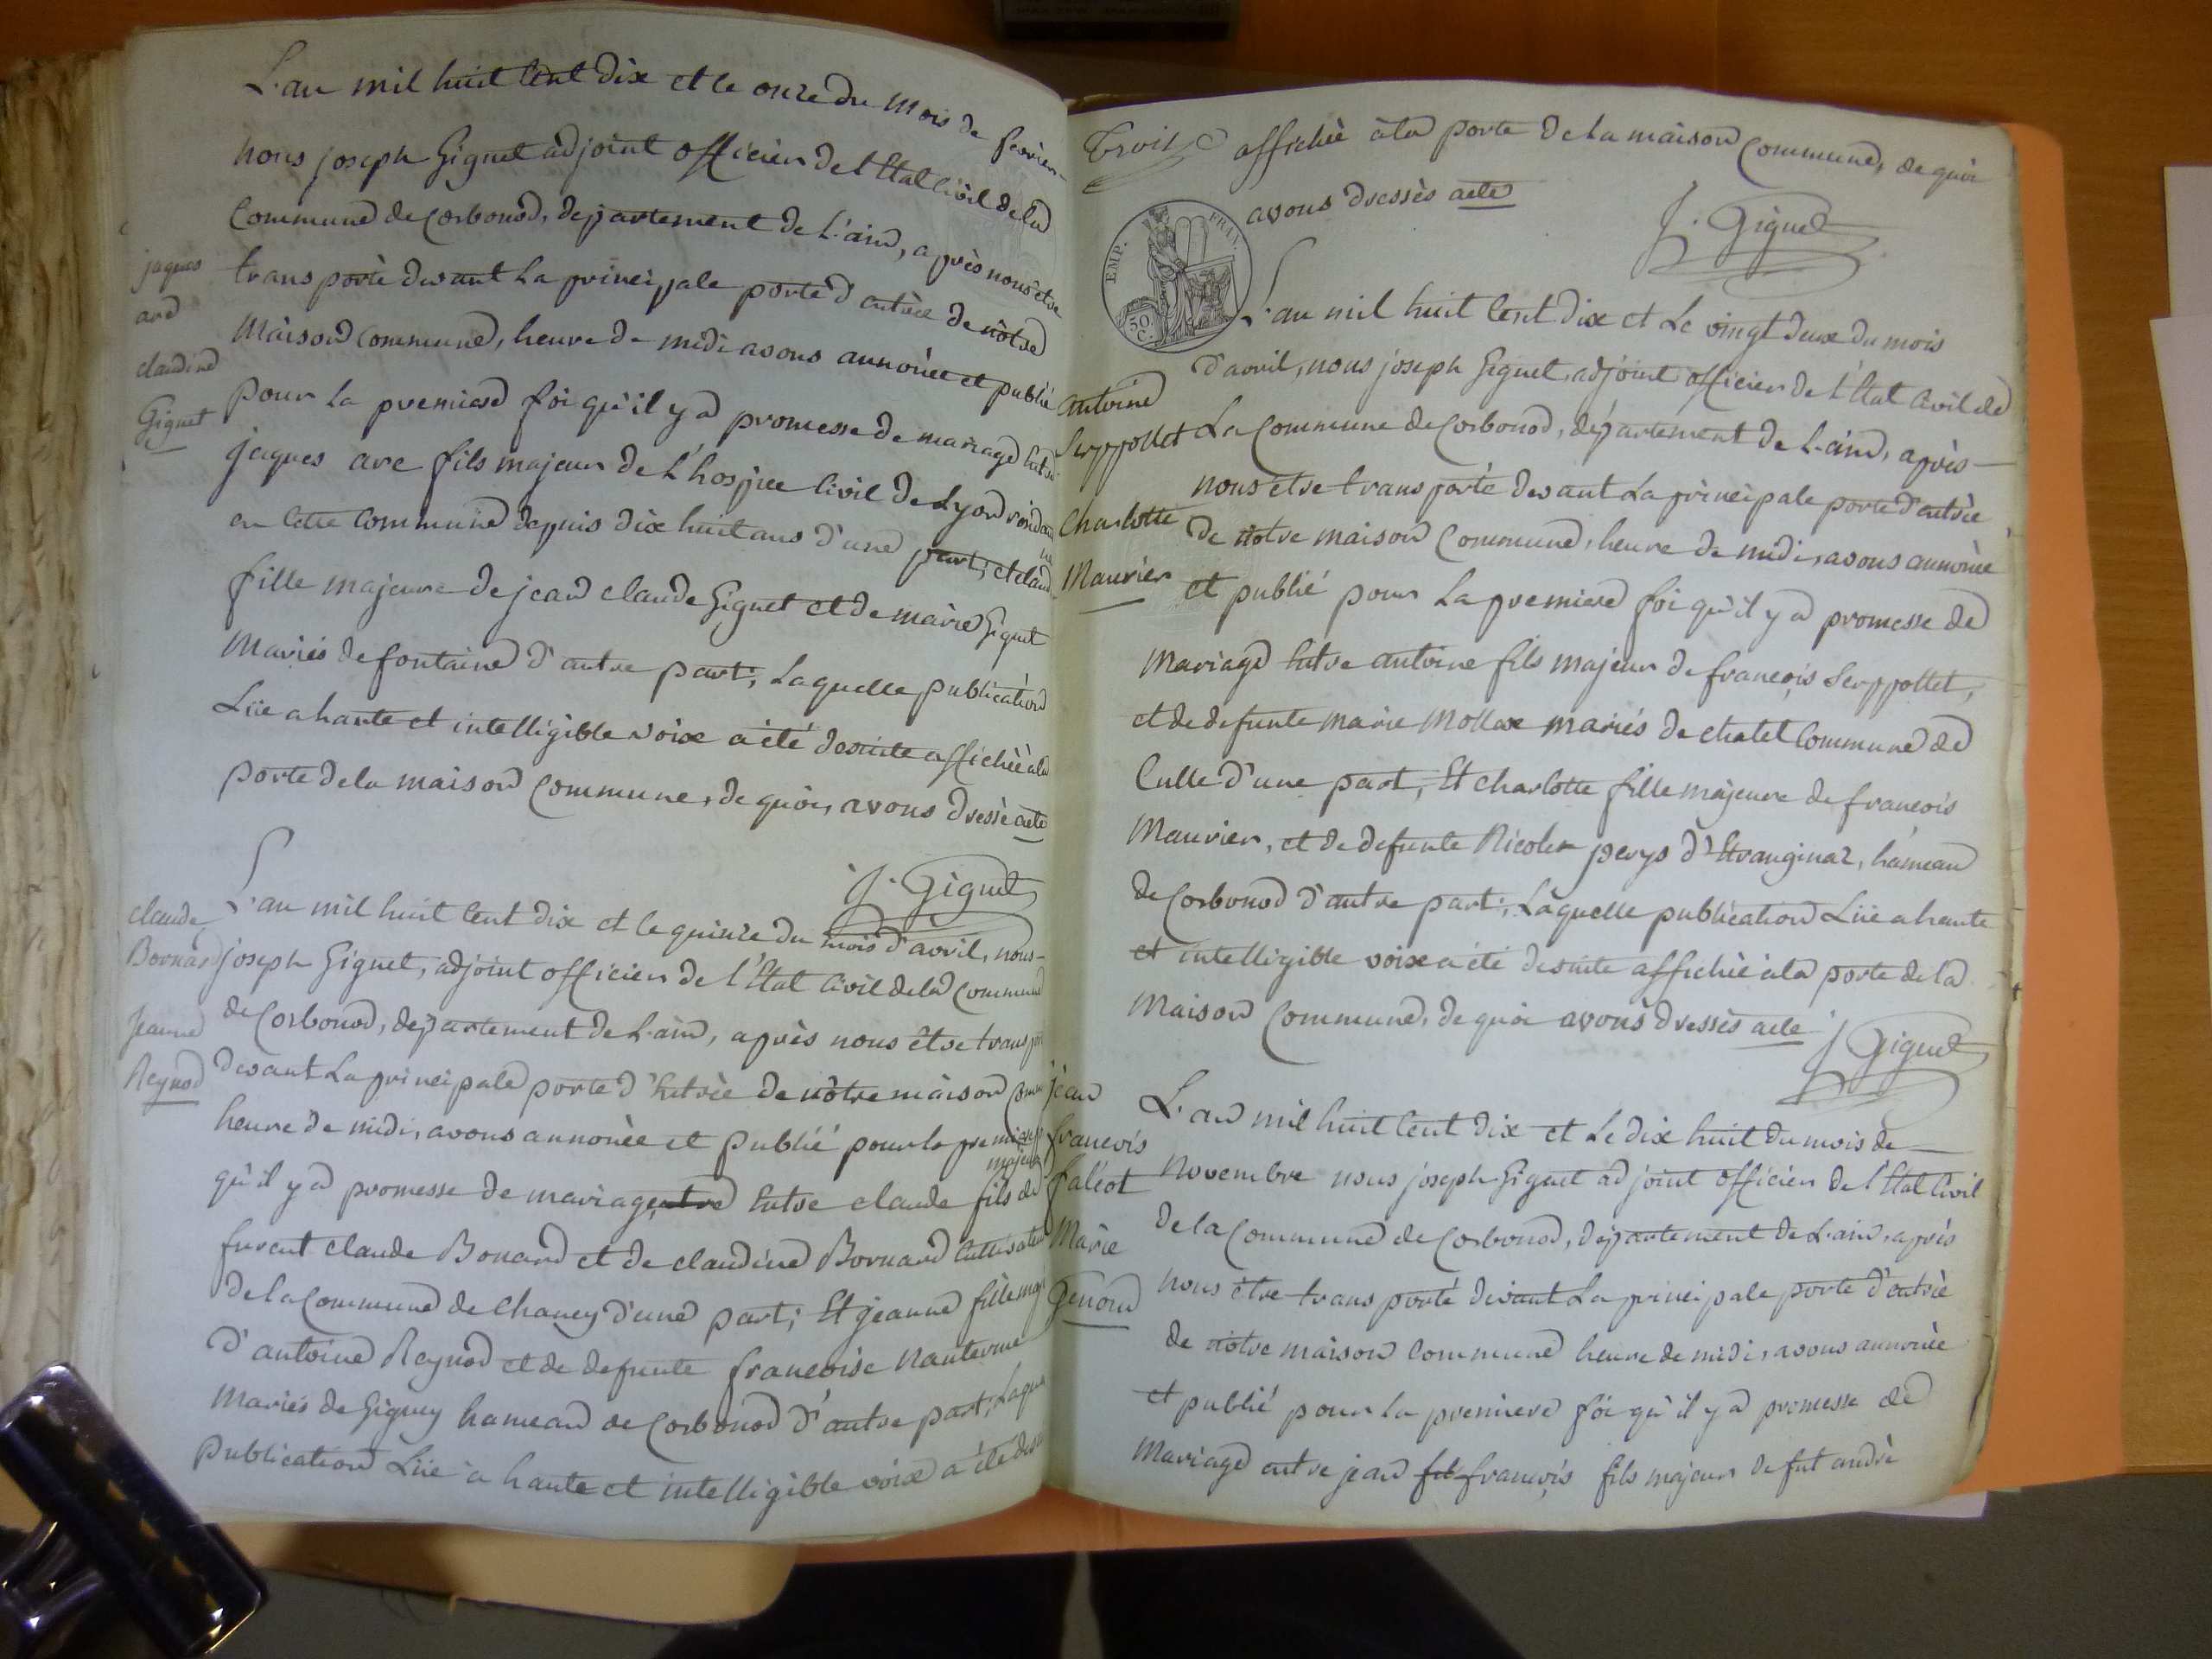 L'an mil huit Cent dix et le onze du mois de fevrier
nous joseph Giguet adjoint officier de l'Etat Civil de la
Commune de Corbonod, departement de L'ain, après nous etre
transporté devant La principale porte d'entrèe de nôtre
Maison Commune, heure de midi avons annoncé et publié
pour la premiere foi qu'il y a promesse de mariage Entre
jaques arc fils majeur de L'hospice Civil de Lyon residant
en Cette Commune depuis dix huit ans d'une part; et claudine
fille majeure de jean claude Giguet et de marie Giguet
Mariés de fontaine d'autre part; Laquelle publication
Lüe a haute et intelligible voix a été desuite affichèe a la
porte de la maison Commune, de quoi, avons dressè acte
J. Giguet
jaques
arc
claudine
Giguet
L'an mil huit Cent dix et le quinze du mois d'avril, nous
joseph Giguet, adjoint officier de l'Etat Civil de la Commune
de Corbonod, departement de L'ain, après nous être transporté
devant La principale porte d'Entrèe de nôtre maison Commune
heure de midi, avons annoncè et publié pour la premiere foi
qu'il y a promesse de mariage entre Entre claude fils majeur de
furent claude Bonard et de claudine Bornard Cultivateurs
de la Commune de Chaney d'une part; Et jeanne fille majeure
d'antoine Reynod et de defunte francoise Nanterme
Mariés de Gigney hameau de Corbonod d'autre part; Laquelle
publication Lüe à haute et intelligible voix a été desuite
claude
Bornard
Jeanne
Reynod
Trois
affichèe à la porte de la maison Commune, de quoi
avons dressès acte
J. Giguet
EMP. FRAN.
50 C.
L'an mil huit Cent dix et Le vingt deux du mois
d'avril, nous joseph Giguet, adjoint officier de l'Etat Civil de
La Commune de Corbonod, département de L'ain, après
nous etre transporté devant La principale porte d'entrèe
de nôtre maison Commune, heure de midi, avons annoncé
et publié pour La premiere foi qu'il y a promesse de
Mariage Entre antoine fils majeur de francois Serppollet,
et de defunte marie Mollax mariés de chatel Commune de
Culle d'une part, Et Charlotte fille majeure de francois
Maurier, et de defunte Nicole perys d'Etranginaz, hameau
de Corbonod d'autre part; Laquelle publication Lüe a haute
et intelligible voix a été desuite affichèe à la porte de la
Maison Commune, de quoi avons dressès acte
J Giguet
antoine
Serppollet
Charlotte
Maurier
L'an mil huit Cent dix et Le dix huit du mois de
Novembre nous joseph Giguet adjoint officier de l'Etat Civil
de la Commune de Corbonod, departement de L'ain, après
nous être transporté devant La principale porte d'entrèe
de nôtre maison Commune heure de midi, avons annoncèe
et publié pour la premiere foi qu'il y a promesse de
Mariage entre jean fils francois fils majeur de fut andrè
jean
francois
falcot
Marie
Genond